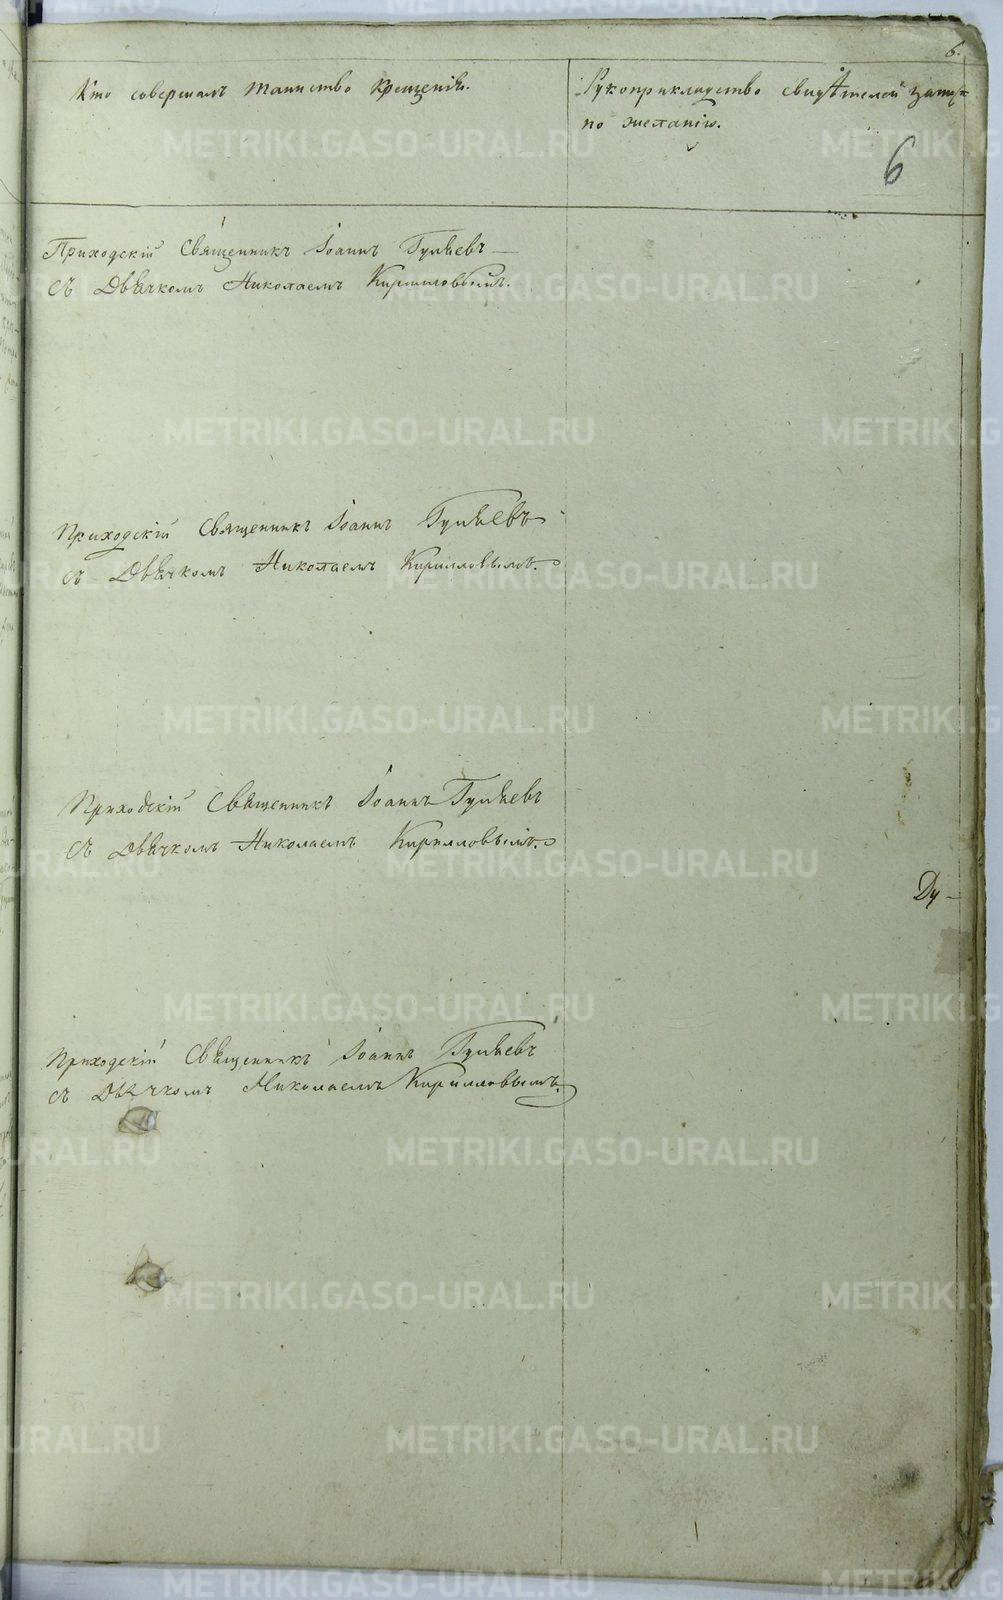 6.
Кто совершалъ таинство крещенія.
Рукоприкладство свидѣтелей записи
по желанію.
6
Приходскій Священникъ Іоаннъ Гуляевъ
съ Дьячкомъ Николаемъ Кирилловымъ.
Приходскій Священникъ Іоаннъ Гуляевъ
съ Дьячкомъ Николаемъ Кирилловымъ.
Приходскій Священникъ Іоаннъ Гуляевъ
съ Дьячкомъ Николаемъ Кирилловымъ.
Ду-
Приходскій Священникъ Іоаннъ Гуляевъ
съ Дьячкомъ Николаемъ Кирилловымъ.
METRIKI.GASO-URAL.RU